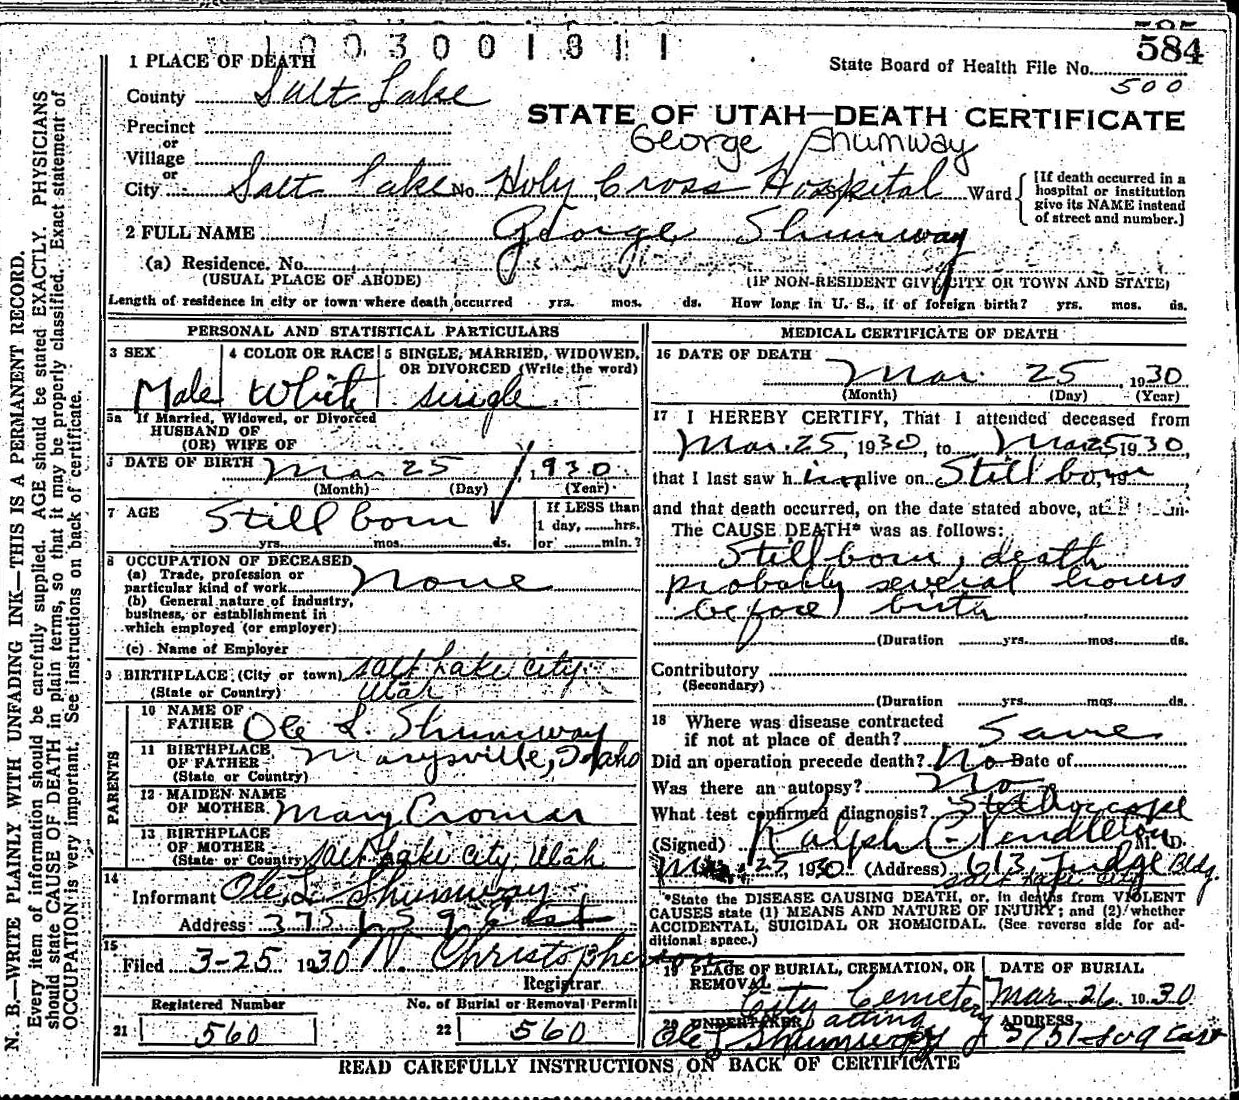 1003001811
584
1 PLACE OF DEATH
State Board of Health File No.
500
County Salt Lake
STATE OF UTAH—DEATH CERTIFICATE
Precinct
or
George Shumway
Village
or
City Salt Lake No. Holy Cross Hospital Ward
[If death occurred in a hospital or institution give its NAME instead of street and number.]
2 FULL NAME George Shumway
(a) Residence. No.
(USUAL PLACE OF ABODE) (IF NON-RESIDENT GIVE CITY OR TOWN AND STATE)
Length of residence in city or town where death occurred yrs. mos. ds. How long in U. S., if of foreign birth? yrs. mos. ds.
PERSONAL AND STATISTICAL PARTICULARS
3 SEX 4 COLOR OR RACE 5 SINGLE, MARRIED, WIDOWED,
OR DIVORCED (Write the word)
Male White single
5a If Married, Widowed, or Divorced
HUSBAND OF
(OR) WIFE OF
DATE OF BIRTH Mar 25 1930
(Month) (Day) (Year)
7 AGE Still born If LESS than
1 day, hrs.
yrs. mos. ds. or min.?
8 OCCUPATION OF DECEASED
(a) Trade, profession or
particular kind of work None
(b) General nature of industry,
business, or establishment in
which employed (or employer)
(c) Name of Employer
9 BIRTHPLACE (City or town) Salt Lake City
(State or Country) Utah
PARENTS
10 NAME OF
FATHER Ole L. Shumway
11 BIRTHPLACE
OF FATHER Marysville, Idaho
(State or Country)
12 MAIDEN NAME
OF MOTHER Mary Cromar
13 BIRTHPLACE
OF MOTHER
(State or Country) Salt Lake City, Utah
14
Informant Ole L. Shumway
Address
15
Filed 3-25 1930 W. Christopherson
Registrar
Registered Number No. of Burial or Removal Permit
21 560 22 560
MEDICAL CERTIFICATE OF DEATH
16 DATE OF DEATH
Mar. 25, 1930
(Month) (Day) (Year)
17 I HEREBY CERTIFY, That I attended deceased from
Mar. 25, 1930, to Mar 25 1930,
that I last saw him alive on Still born, 19
and that death occurred, on the date stated above, at m.
The CAUSE DEATH* was as follows:
Still born, death
probably several hours
before birth
(Duration yrs. mos. ds.
Contributory
(Secondary)
(Duration yrs. mos. ds.
18 Where was disease contracted
if not at place of death? Same
Did an operation precede death? No Date of
Was there an autopsy? No
What test confirmed diagnosis? Stethoscope
(Signed) Ralph C. Pendleton M. D.
Mar 25, 1930 (Address) 613 Judge Bldg.
Salt Lake City
*State the DISEASE CAUSING DEATH, or, in deaths from VIOLENT
CAUSES state (1) MEANS AND NATURE OF INJURY; and (2) whether
ACCIDENTAL, SUICIDAL OR HOMICIDAL. (See reverse side for ad-
ditional space.)
19 PLACE OF BURIAL, CREMATION, OR REMOVAL DATE OF BURIAL
City Cemetery Mar 26 1930
20 UNDERTAKER acting ADDRESS
Ole L Shumway
READ CAREFULLY INSTRUCTIONS ON BACK OF CERTIFICATE
N. B.—WRITE PLAINLY WITH UNFADING INK—THIS IS A PERMANENT RECORD.
Every item of information should be carefully supplied. AGE should be stated EXACTLY. PHYSICIANS
should state CAUSE OF DEATH in plain terms, so that it may be properly classified. Exact statement of
OCCUPATION is very important. See instructions on back of certificate.